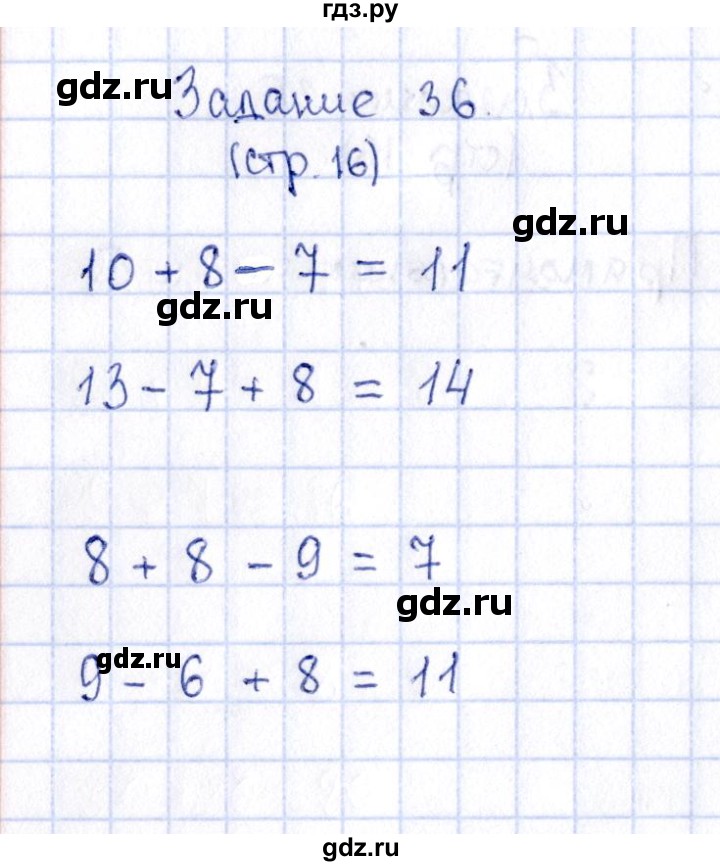 гдз.ру
gdz.ru
Задание 36.
(стр. 16)
gdz.ru
10 + 8 - 7 = 11
gdz.ru
13 - 7 + 8 = 14
8 + 8 - 9 = 7
gdz.ru
gdz.ru
9 - 6 + 8 = 11
gdz.ru